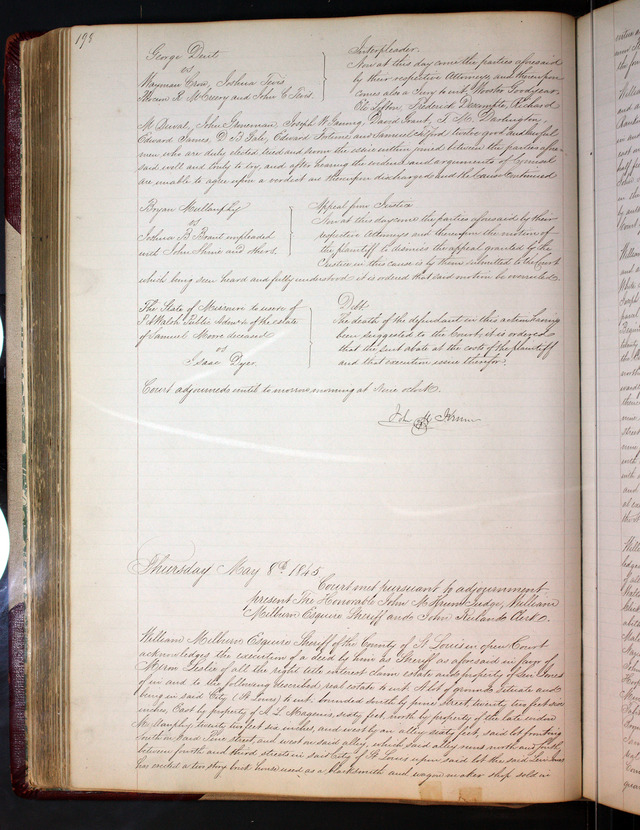 198
George Dent
vs
Wayman Crow, Joshua Tevis
Hiram R. McCreery and John C Tevis
Interpleader.
Now at this day come the parties aforesaid
by their respective Attorneys and thereupon
comes also a Jury to wit, Wooster Goodyear
Frederick Richard
M Duval, John David Grant, T. M. Darlington,
Edward James, D B Gale, Edward and Samuel twelve good and lawful
men who are duly elected tried and sworn the issue within joined between the parties afore
said well and truly to try, and after hearing the evidence and arguments of Counsel
are unable to agree upon a verdict are thereupon discharged and the Cause Continued
Bryan Mullanphy
vs
Joshua B Brant impleaded
with John Shine and others.
Appeal from Justice
Now at this day come the parties aforesaid by their
respective Attorneys and thereupon the motion of
the plaintiff to dismiss the appeal granted by the
Justice in this cause is by them submitted to the Court
which being seen heard and fully understood it is ordered that said motion be overruled.
The State of Missouri to use of
Walsh Public Admr. of the estate
of Samuel Moore deceased
vs
Isaac Dyer.
Debt.
The death of the defendant in this action having
been suggested to the Court, it is ordered
that the suit abate at the costs of the plaintiff
and that execution issue therefor.
Court adjourned until to morrow morning at Nine oclock.
Jno M Krum
Thursday May 8th 1845
Court met pursuant to adjournment
present The Honorable John M. Krum Judge, William
Milburn Esquire Sheriff and John Ruland Clerk.
William Milburn Esquire Sheriff of the County of St Louis in open Court
acknowledges the execution of a deed by him as Sheriff as aforesaid in favor of
Leslie of all the right title interest claim estate and property of Jones
of in and to the following described real estate to wit. A lot of ground situate and
being in said City (St Louis) to wit, bounded South by pine Street, twenty two feet six
inches, East by property of A. L. Magenis, sixty feet, north by property of the late widow
Mullanphy twenty two feet six inches, and west by an alley sixty feet, said lot fronting
South on said Pine street and west on said alley, which said alley runs north and south,
between fourth and third streets in said City of St Louis upon said lot the said Jones
has erected a two story brick house used as a blacksmith and wagon maker shop sold in